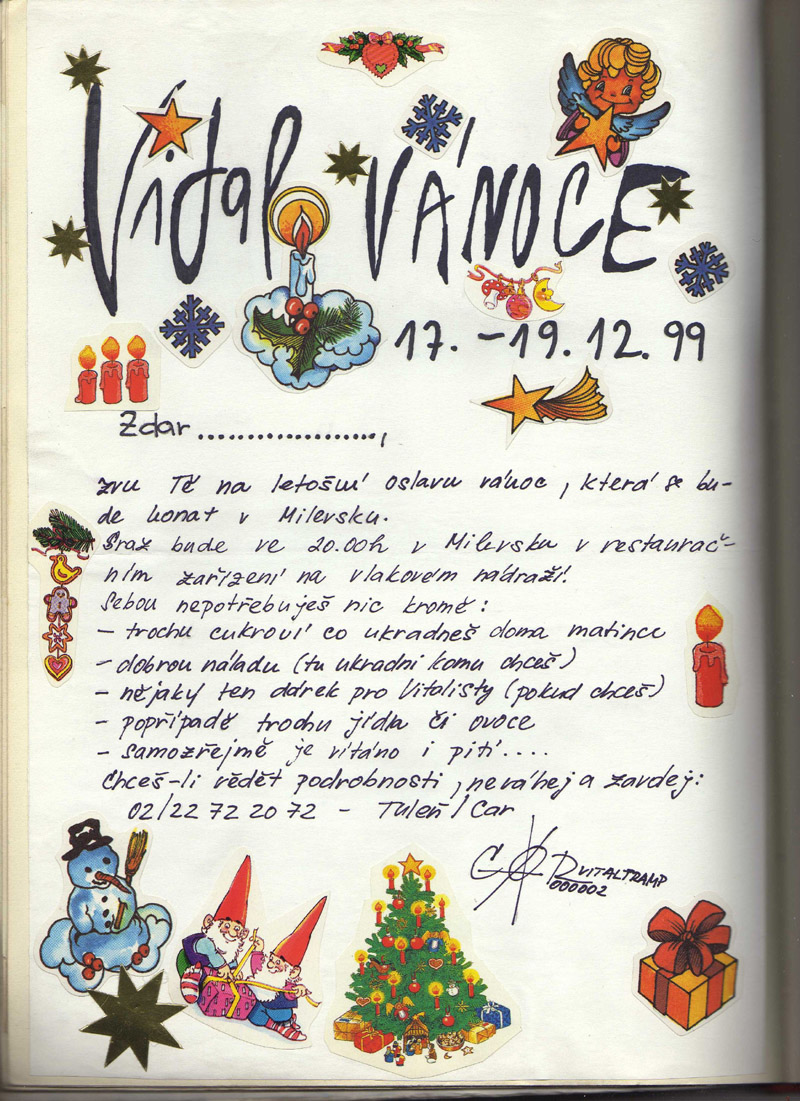 Vital VÁNOCE
17. – 19. 12. 99
Zdar ....................,
zvu Tě na letošní oslavu vánoc, která se bu-
de konat v Milevsku.
Sraz bude ve 20.00h v Milevsku v restaurač-
ním zařízení na vlakovém nádraží!
Sebou nepotřebuješ nic kromě:
– trochu cukroví co ukradneš doma matince
– dobrou náladu (tu ukradni komu chceš)
– nějaký ten dárek pro Vitalisty (pokud chceš)
– popřípadě trochu jídla či ovoce
– samozřejmě je vítáno i pití....
Chceš-li vědět podrobnosti, neváhej a zavolej:
02/22 72 20 72 – Tuleň / Car
VITALTRAMP
000002